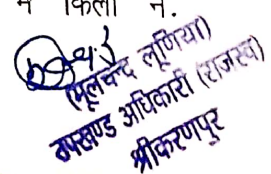 न किला न.
(मूलचन्द लूणिया)
उपखण्ड अधिकारी (राजस्व)
श्रीकरणपुर